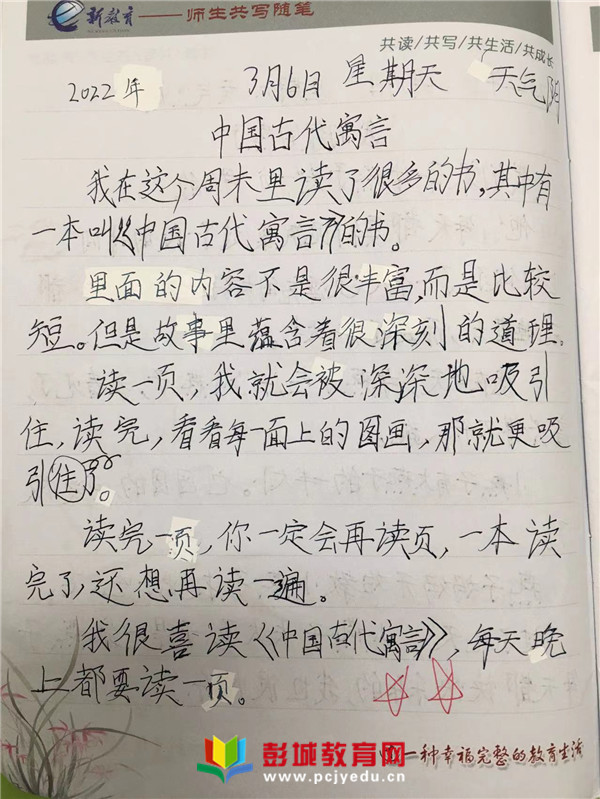 新教育——师生共写随笔
共读/共写/共生活/共成长
2022年 3月6日 星期天 天气阴
中国古代寓言
我在这个周末里读了很多的书,其中有
一本叫《中国古代寓言》的书。
里面的内容不是很丰富,而是比较
短。但是故事里蕴含着很深刻的道理。
读一页,我就会被深深地吸引
住,读完,看看每一面上的图画,那就更吸
引住了。
读完一页,你一定会再读页,一本读
完了,还想再读一遍。
我很喜读《中国古代寓言》,每天晚
上都要读一页。
彭城教育网
www.pcjyedu.cn
一种幸福完整的教育生活